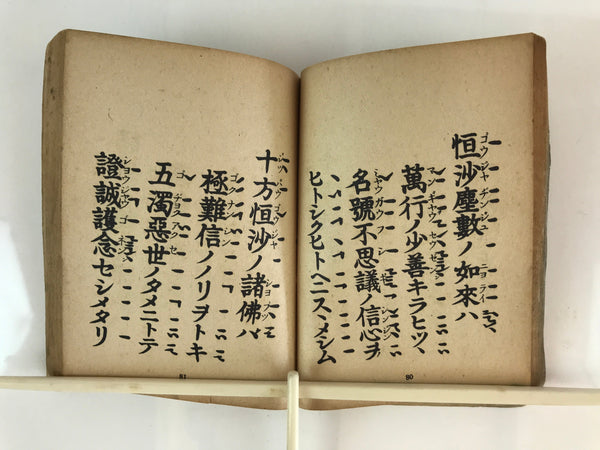 恒沙塵數ノ如來ハ
萬行ノ少善キラヒツヽ
名號不思議ノ信心ヲ
ヒトシクヒトヘニスヽメシム
80
十方恒沙ノ諸佛ハ
極難信ノノリヲトキ
五濁惡世ノタメニトテ
證誠護念セシメタリ
81